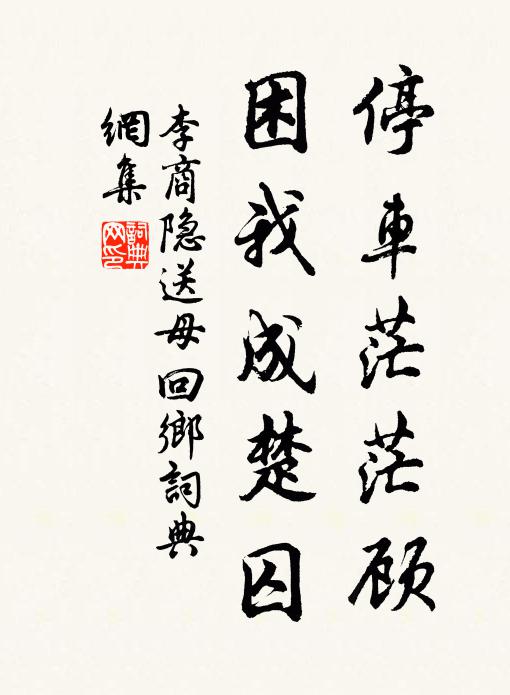 停車茫茫顾
困我成楚囚
李商隐送母回鄉詞典
網集
詞典
网印